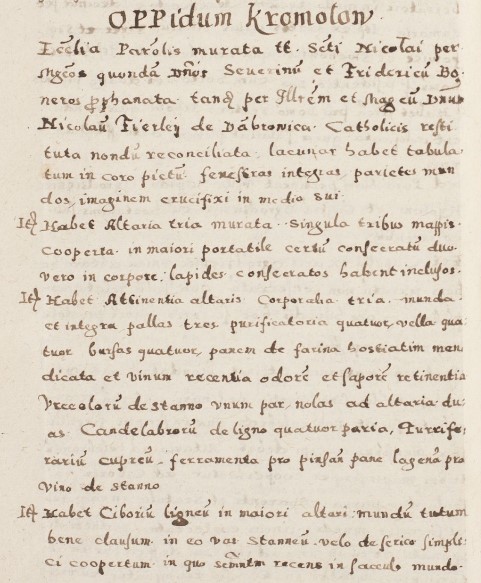 OPPidum Kromolow
Ecclia Paroliš murata tt. Scti Nicolai per
Mgcos quondã Dños Severinũ et Fridericũ Bo,
neros prophanata tandẽ per Illrẽm et Magcũ Dnũ
Nicolaũ Firleÿ de Dãbrovica Catholicis resti
tuta nondũ reconciliata. lacunar habet tabula
tum in coro pictũ. fenestras integras, parietes mun
dos, imaginem crucifixi in medio sui.
Itẽ Habet Altaria tria murata. singula tribus mappis
cooperta. in maiori portatile certũ consecratũ duo
vero in corpore, lapides consecratos habent inclusos.
Itẽ Habet Attinentia altaris Corporalia tria. munda
et integra pallas tres purificatoria quatuor, vella qua
tuor bursas quatuor, panem de farina hostiatim men
dicata et vinum recentia odorẽ et saporẽ retinentia
Vrceolorũ de stanno vnum par, nolas ad altaria du,
as Candelabrorũ de ligno quatuor paria, Turrife,
rariũ cupreũ, ferramenta pro pinsañ pane lagenã pro
vino de stanno
Itẽ Habet Ciboriũ ligneũ in maiori altari mundũ tutum
bene clausum. in eo vas stanneũ. velo de serico simpli,
ci coopertum in quo Scrm̃tm recens in sacculo mundo.